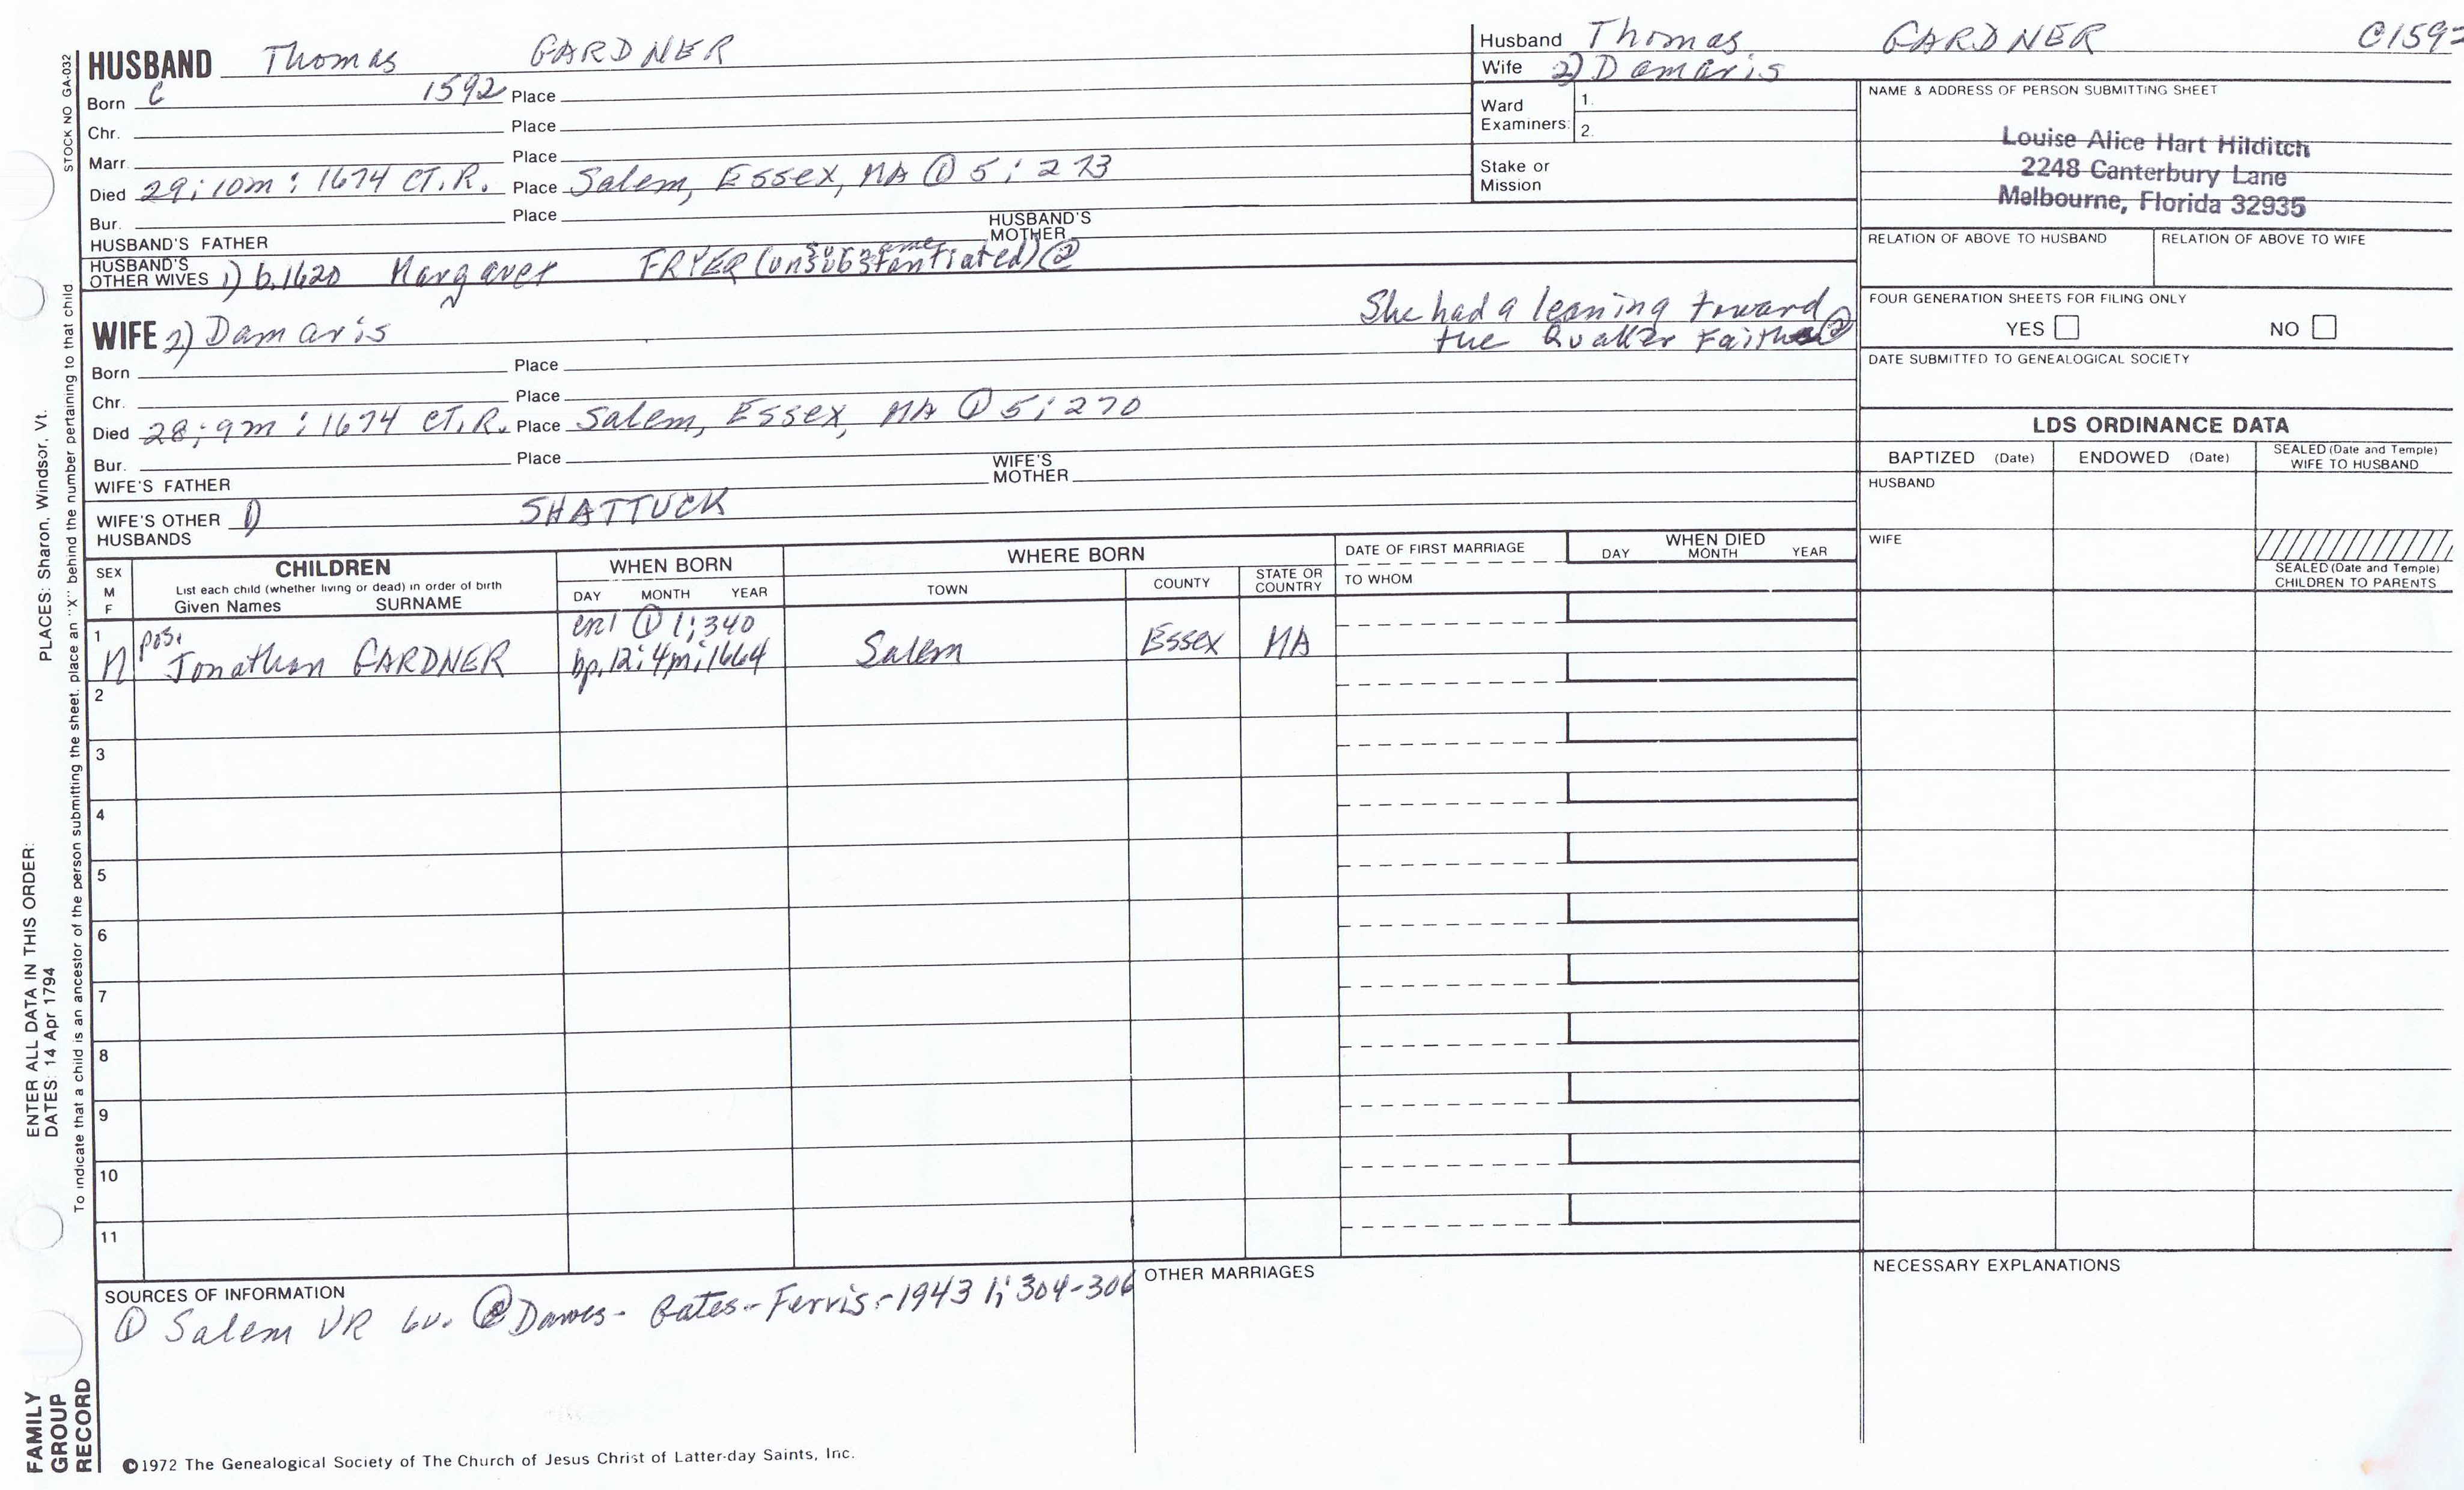 HUSBAND Thomas GARDNER
Born C 1592 Place
Chr. Place
Marr. Place
Died 29; 10m; 1674 CT.R. Place Salem, Essex, MA ① 5; 273
Bur. Place
HUSBAND'S FATHER HUSBAND'S MOTHER
HUSBAND'S OTHER WIVES 1) b. 1620 Margaret FRYER (surname unsubstantiated) ②
WIFE 2) Damaris
She had a leaning toward
the Quaker Faith ②
Born Place
Chr. Place
Died 28; 9m; 1674 CT.R. Place Salem, Essex, MA ① 5; 270
Bur. Place
WIFE'S FATHER WIFE'S MOTHER
WIFE'S OTHER HUSBANDS 1) SHATTUCK
Husband Thomas GARDNER C159
Wife 2) Damaris
Ward Examiners: 1.
2.
Stake or Mission
NAME & ADDRESS OF PERSON SUBMITTING SHEET
Louise Alice Hart Hilditch
2248 Canterbury Lane
Melbourne, Florida 32935
RELATION OF ABOVE TO HUSBAND RELATION OF ABOVE TO WIFE
FOUR GENERATION SHEETS FOR FILING ONLY
YES NO
DATE SUBMITTED TO GENEALOGICAL SOCIETY
LDS ORDINANCE DATA
BAPTIZED (Date) ENDOWED (Date) SEALED (Date and Temple) WIFE TO HUSBAND
HUSBAND
WIFE
SEALED (Date and Temple)
CHILDREN TO PARENTS
SEX M F
CHILDREN
List each child (whether living or dead) in order of birth
Given Names SURNAME
WHEN BORN
DAY MONTH YEAR
WHERE BORN
TOWN COUNTY STATE OR COUNTRY
DATE OF FIRST MARRIAGE
TO WHOM
WHEN DIED
DAY MONTH YEAR
1 M pos. Jonathan GARDNER ① 1; 340
bp. 12; 4m; 1664 Salem Essex MA
2
3
4
5
6
7
8
9
10
11
SOURCES OF INFORMATION
① Salem VR 6v. ② Dawes-Gates-Ferris-1943 1; 304-306
OTHER MARRIAGES
NECESSARY EXPLANATIONS
©1972 The Genealogical Society of The Church of Jesus Christ of Latter-day Saints, Inc.
STOCK NO GA-032
To indicate that a child is an ancestor of the person submitting the sheet, place an "X" behind the number pertaining to that child
PLACES: Sharon, Windsor, Vt.
ENTER ALL DATA IN THIS ORDER:
DATES: 14 Apr 1794
FAMILY
GROUP
RECORD